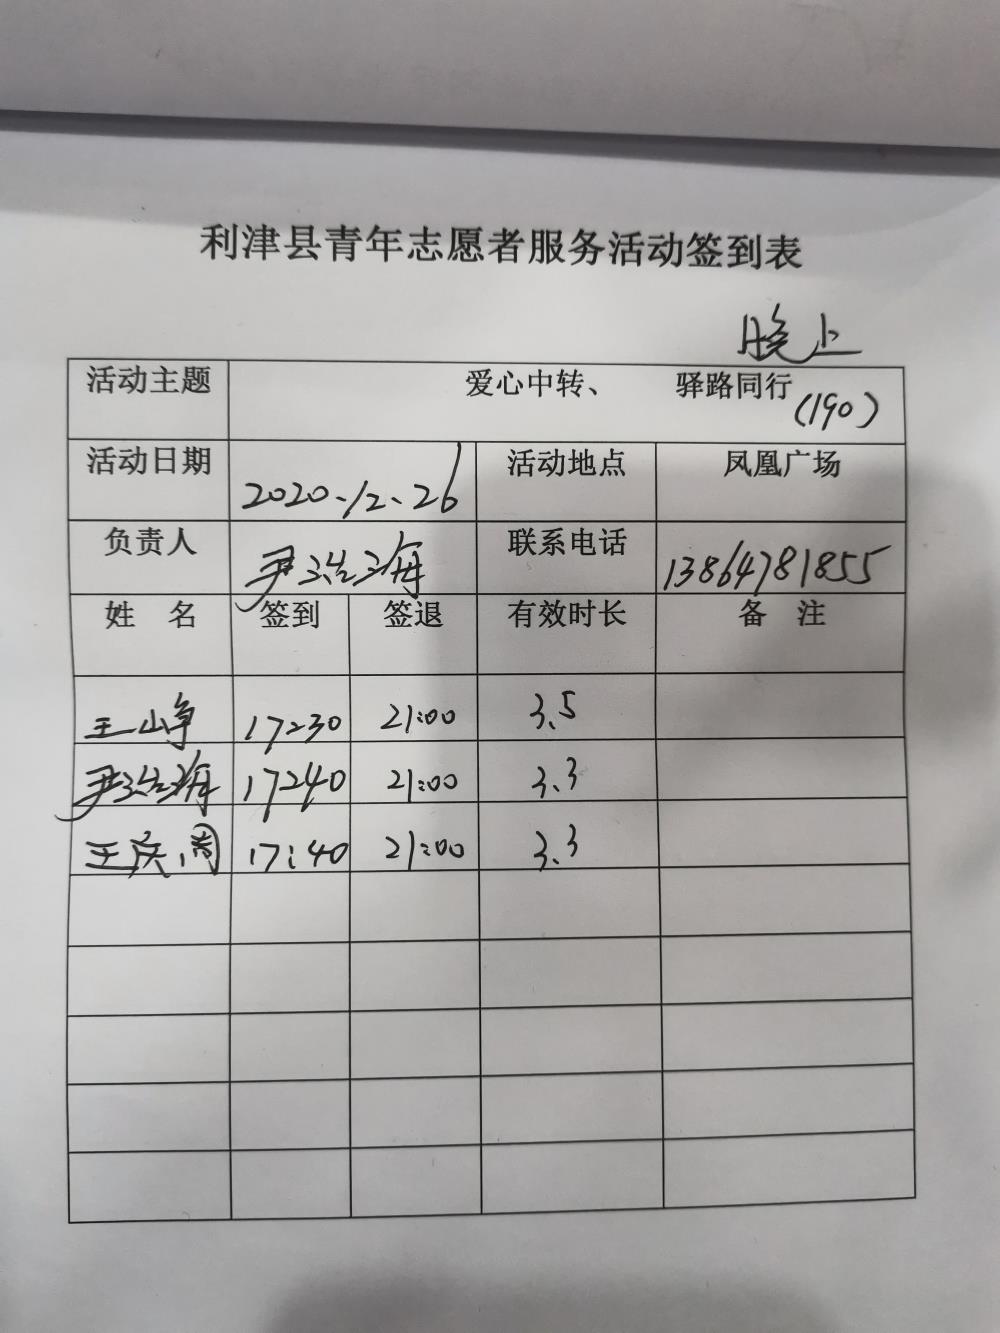 利津县青年志愿者服务活动签到表
晚上
活动主题 爱心中转、 驿路同行 (190)
活动日期 2020.12.26 活动地点 凤凰广场
负责人 尹浩海 联系电话 13864781855
姓 名 签到 签退 有效时长 备 注
王山峥 17:30 21:00 3.5
尹浩海 17:40 21:00 3.3
王庆 17:40 21:00 3.3